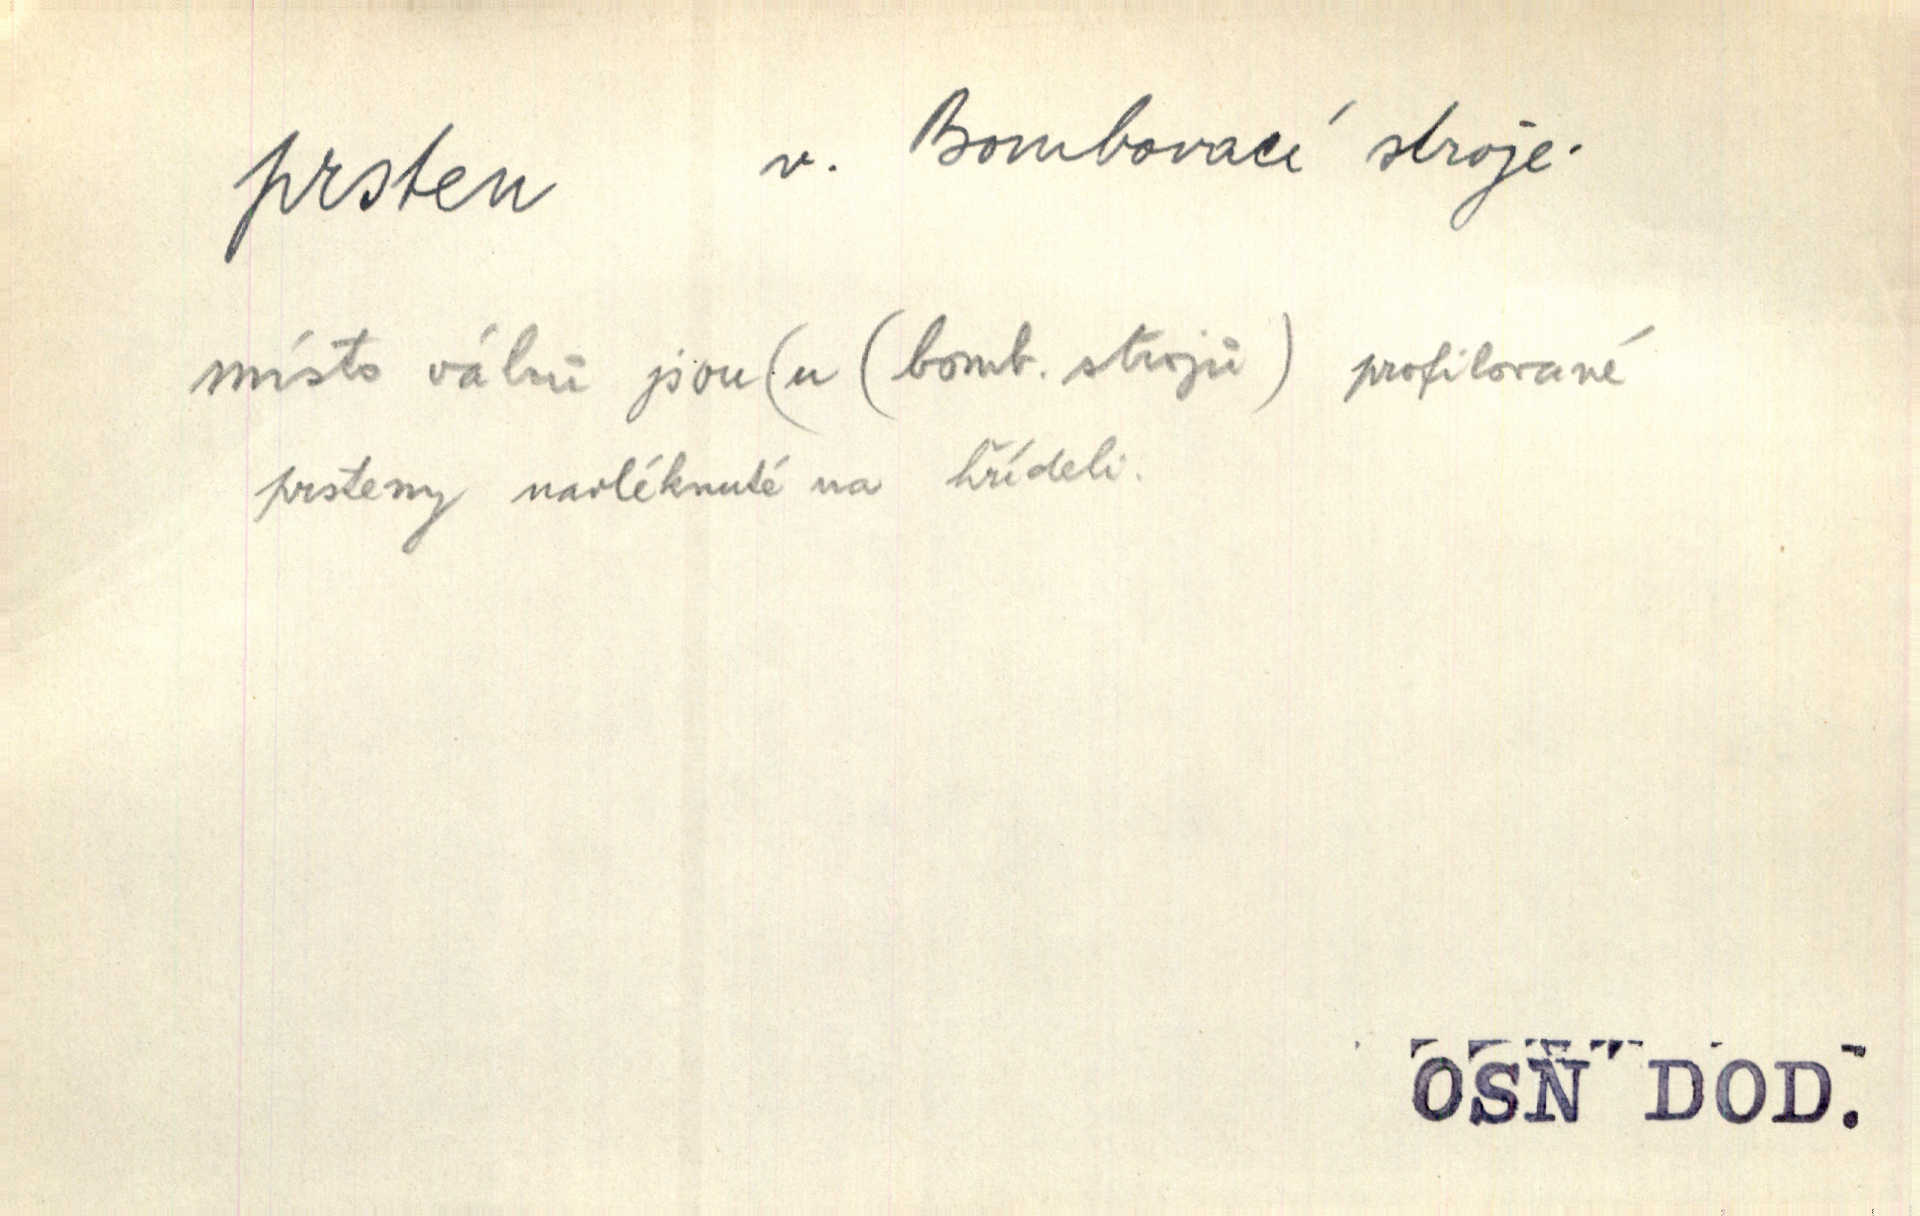 prsten v. Bombovací stroje.
místo válců jsou (u (bomb. strojů) profilované
prsteny navléknuté na hřídeli.
OSN DOD.